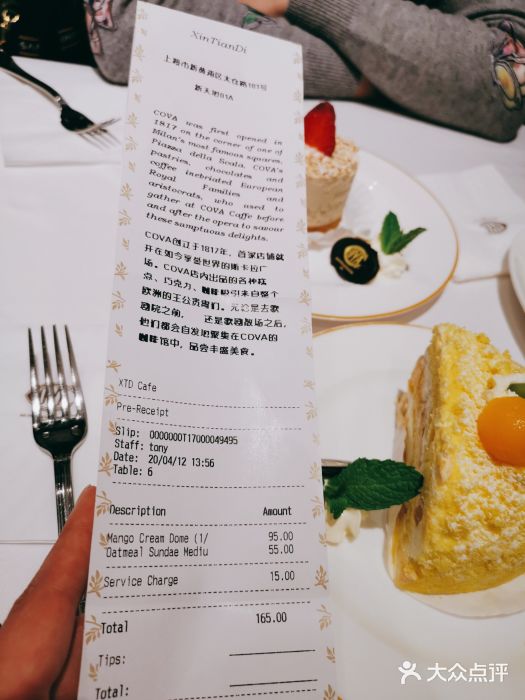 XinTianDi
上海市新黄浦区太仓路181号
新天地01A
COVA was first opened in
1817 on the corner of one of
Milan's most famous squares,
Piazza della Scala. COVA's
pastries, chocolates and
coffee inebriated European
Royal Families and
aristocrats, who used to
gather at COVA Caffe before
and after the opera to savour
these sumptuous delights.
COVA创订于1817年，首家店铺就
开在如今享誉世界的斯卡拉广
场。COVA店内出品的各种糕
点、巧克力、咖啡吸引来自整个
欧洲的王公贵胄们。无论是去歌
剧院之前， 还是歌剧散场之后，
他们都会自发地聚集在COVA的
咖啡馆中，品尝丰盛美食。
XTD Cafe
Pre-Receipt
Slip: 0000000T17000049495
Staff: tony
Date: 20/04/12 13:56
Table: 6
Description Amount
Mango Cream Dome (1/ 95.00
Oatmeal Sundae Mediu 55.00
Service Charge 15.00
Total 165.00
Tips:
Total:
大众点评